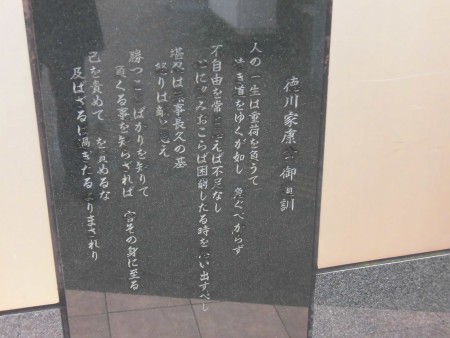 徳川家康 御 訓
人の一生は重荷を負うて
き道をゆくが如し 急ぐべからず
不自由を常 思えば不足なし
に みおこらば困窮したる時を思い出すべし
堪忍は 事長久の基
怒りは 思え
勝つこ ばかりを知りて
負くる事を知らざれば 害その身に至る
己を責めて を責めるな
及ばざるは過ぎたる よりまされり